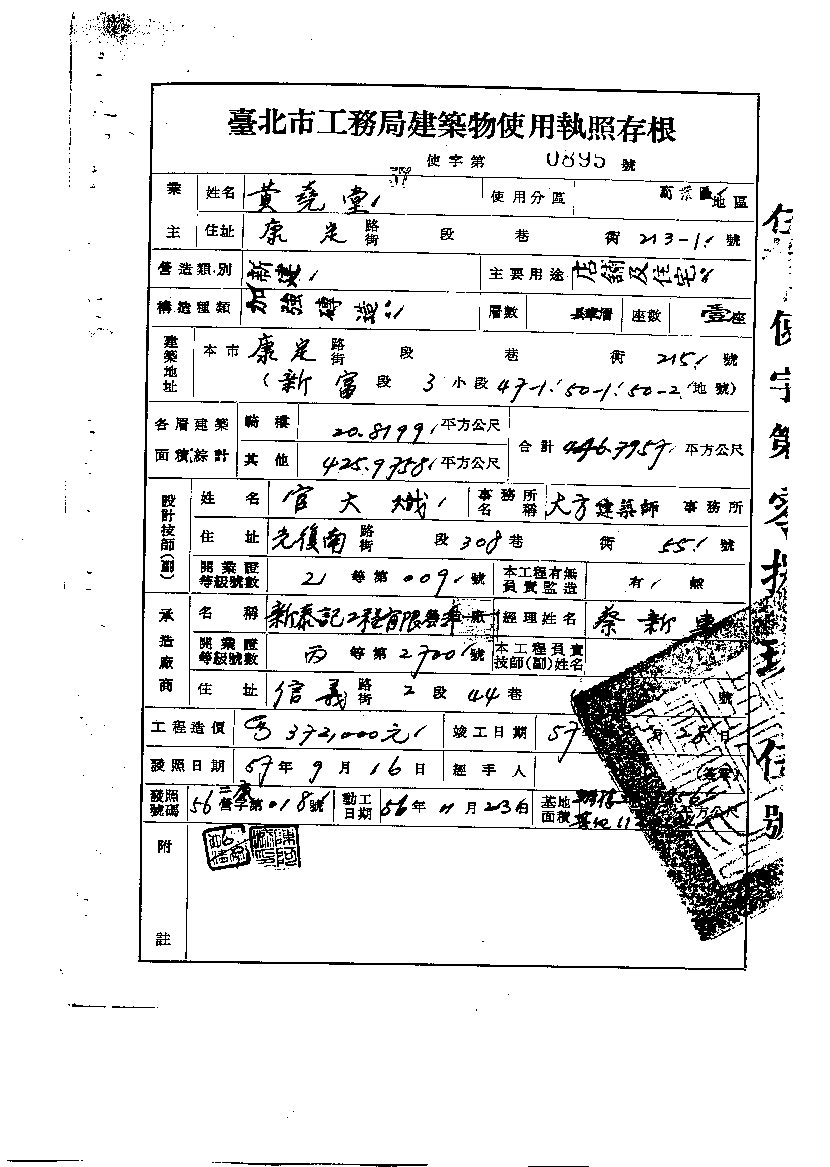 臺北市工務局建築物使用執照存根
使字第 0895 號
57
業主 姓名 黃堯堂 使用分區 商業區 地區
住址 康定 路街 段 巷 衖 213-1 號
營造類別 新建 主要用途 店鋪及住宅
構造種類 加強磚造 層數 座數 壹座
建築地址 本市 康定 路街 段 巷 衖 215 號
(新富段 3 小段 47-1 50-1 50-2 地號)
各層建築面積綜計 騎樓 20.8199 平方公尺 合計 446.7957 平方公尺
其他 425.9758 平方公尺
設計技師(副) 姓名 官大 事務所名稱 大方建築師 事務所
住址 光復南 路街 段 308 巷 衖 55 號
開業證等級號數 等第 009 號 本工程有無負責監造 有 無
承造廠商 名稱 新泰記工程有限 廠 經理姓名 蔡新
開業證等級號數 丙 等第 2700 號 本工程負責技師(副)姓名
住址 信義 路街 2 段 44 巷 號
工程造價 372,000元 竣工日期 57 28 日
發照日期 57 年 9 月 16 日 經手人
發照號碼 56 營字第 018 號 動工日期 56 年 11 月 23 日 基地面積 平方公尺
附註
使字第零捌玖伍號